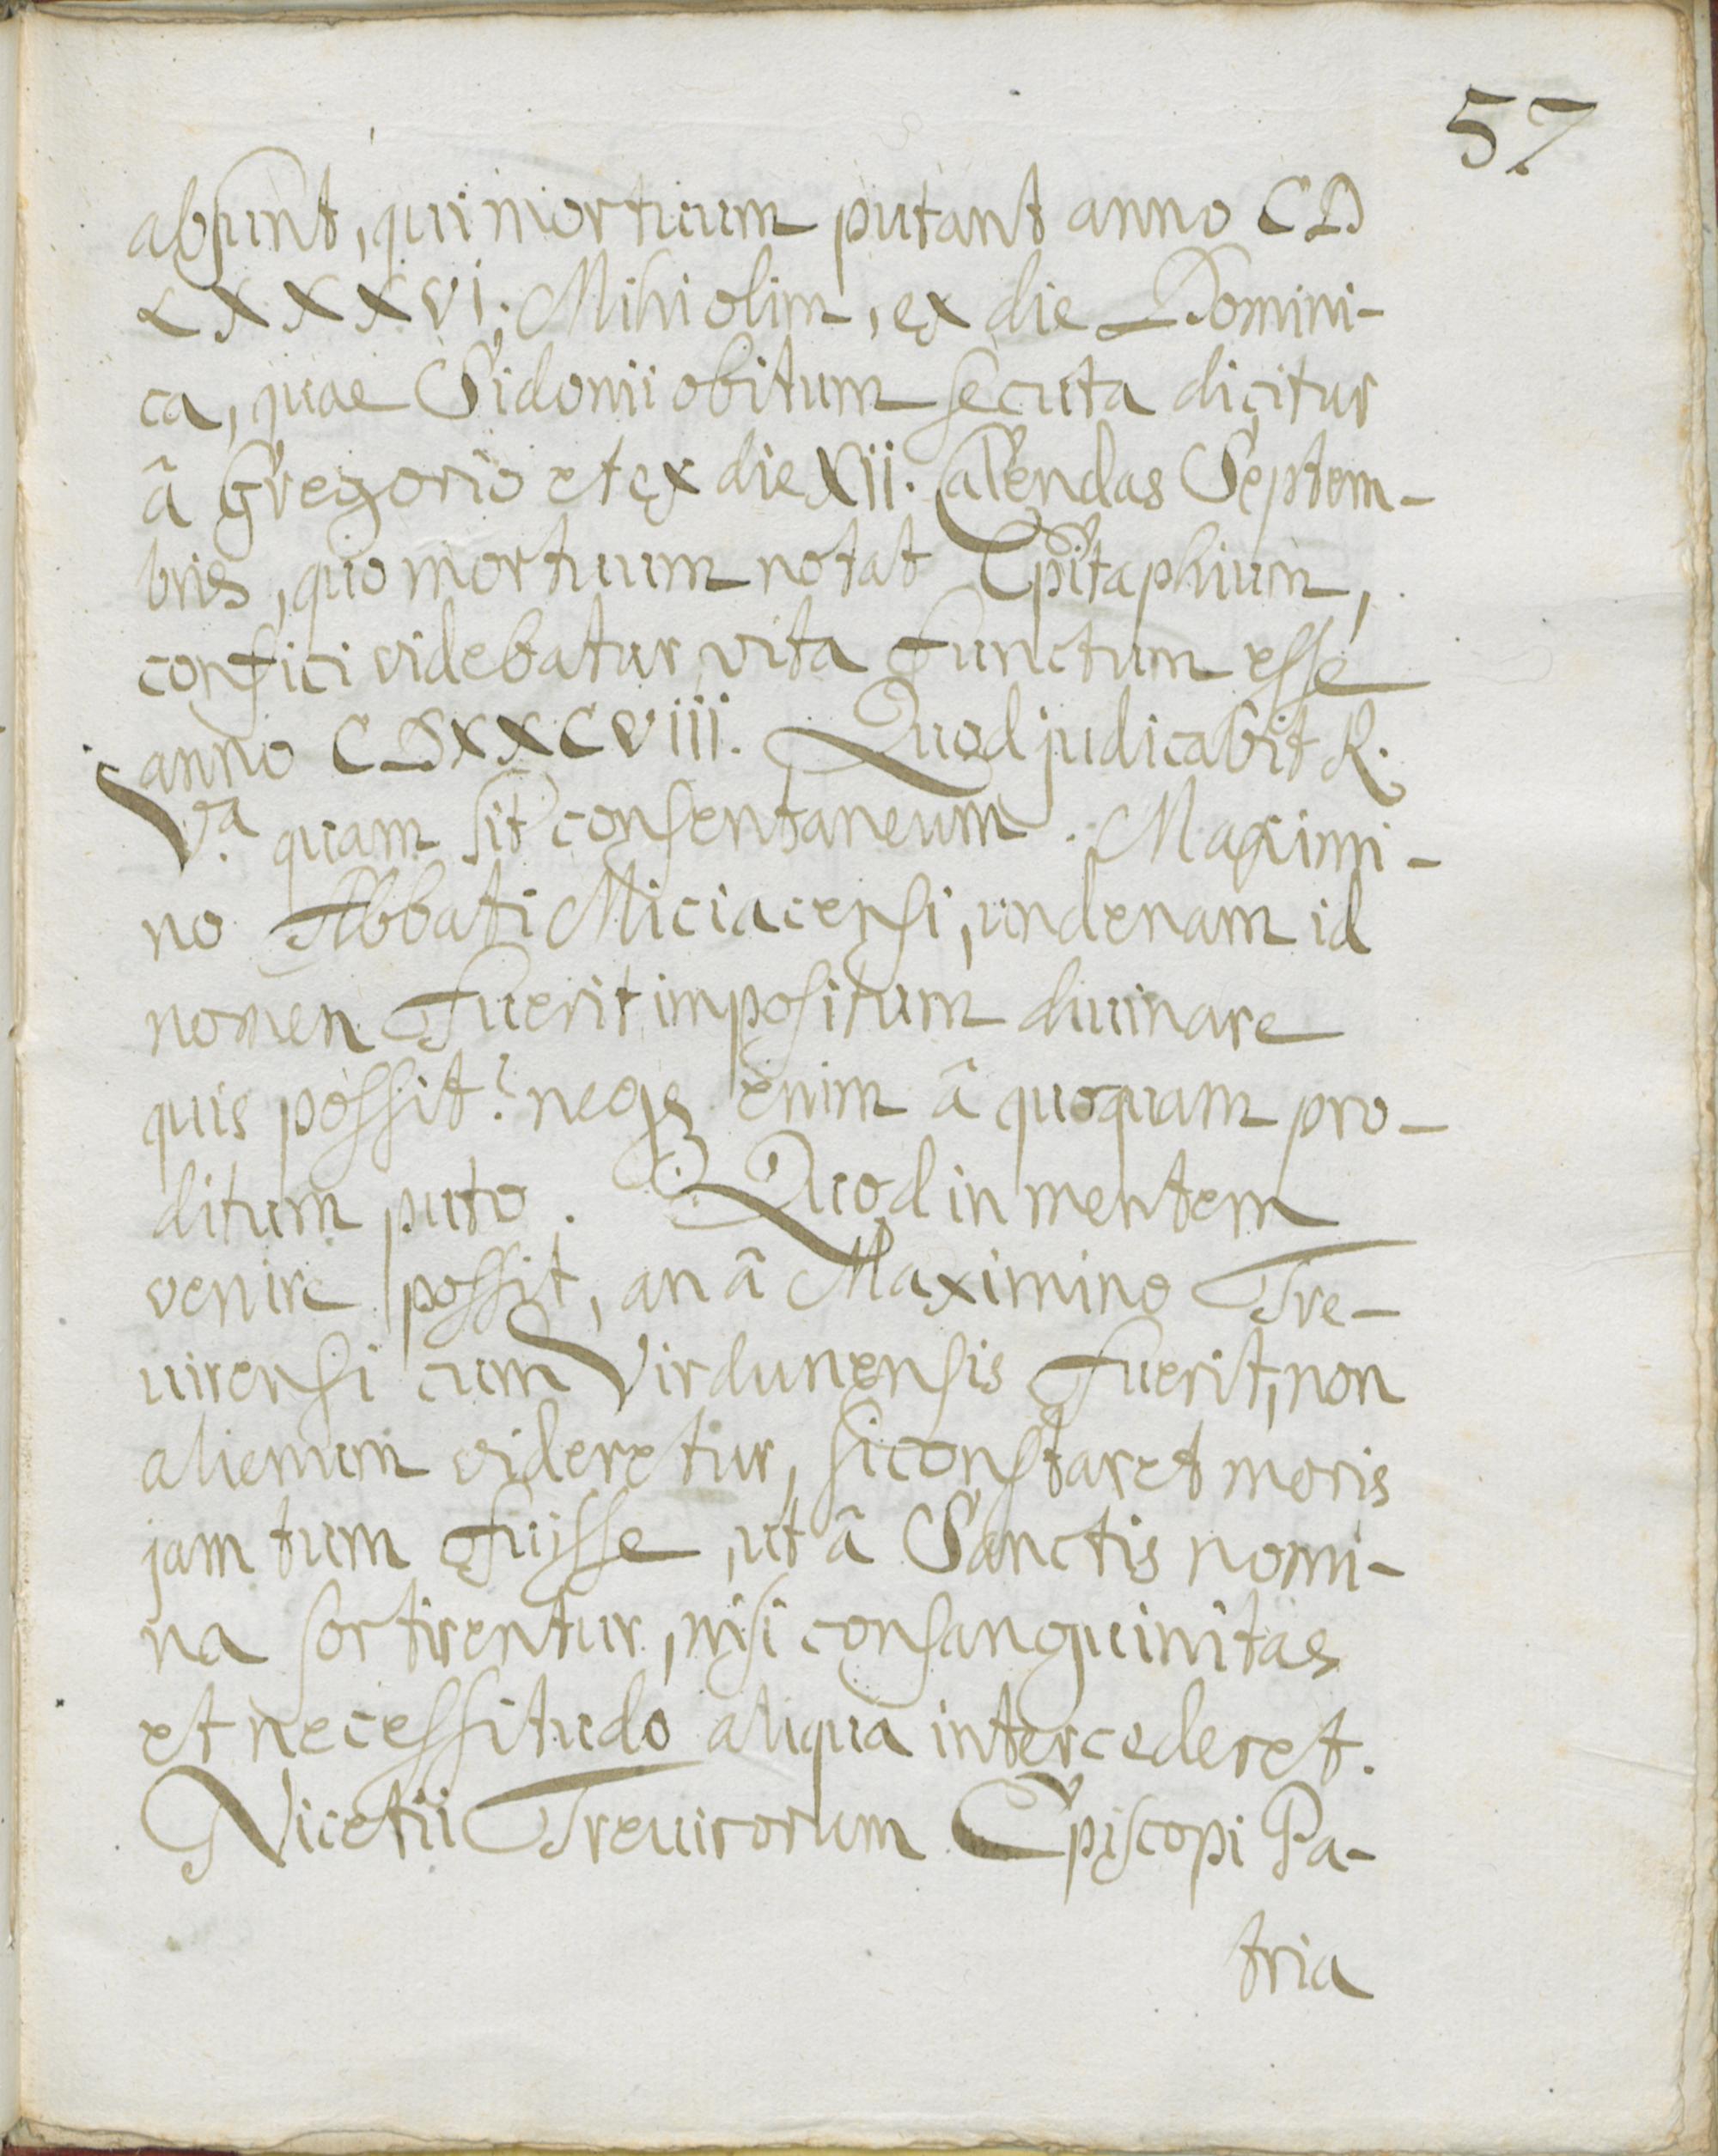 57
absunt, qui mortuum putant anno CD
LXXXVI; Mihi olim, ex die Domini-
ca, quae Sidonii obitum secuta dicitur
â Gregorio et ex die XII. Calendas Septem-
bris, quo mortuum notat Epitaphium,
confici videbatur vita functum esse
anno CDXXCVIIII. Quod judicabit R.
Vª quam sit consentaneum. Maximi-
no Abbati Miciacensi, undenam id
nomen fuerit impositum diuinare
quis possit? neqȝ enim â quoquam pro-
ditum puto. Quod in mentem
venire possit, an â Maximino Tre-
uirensi cum Virdunensis fuerit, non
alienum videretur, si constaret moris
jam tum fuisse, ut â Sanctis nomi-
na sortirentur, nisi consanguinitas
et necessitudo aliqua intercederet.
Nicetii Treuirorum Episcopi Pa-
tria